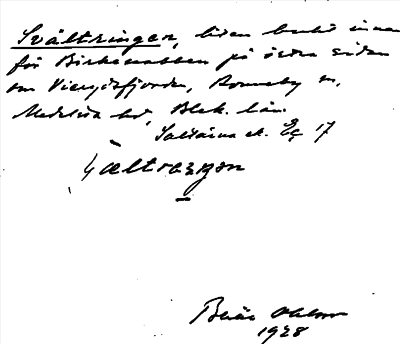 Svältringen, liten bukt innan
för Birkenabben på östra sidan
om Vierydsfjorden, Ronneby sn,
Medelsta hd, Blek. län.
Saltärna ek. Eg 17
Börje Ohlson
1928